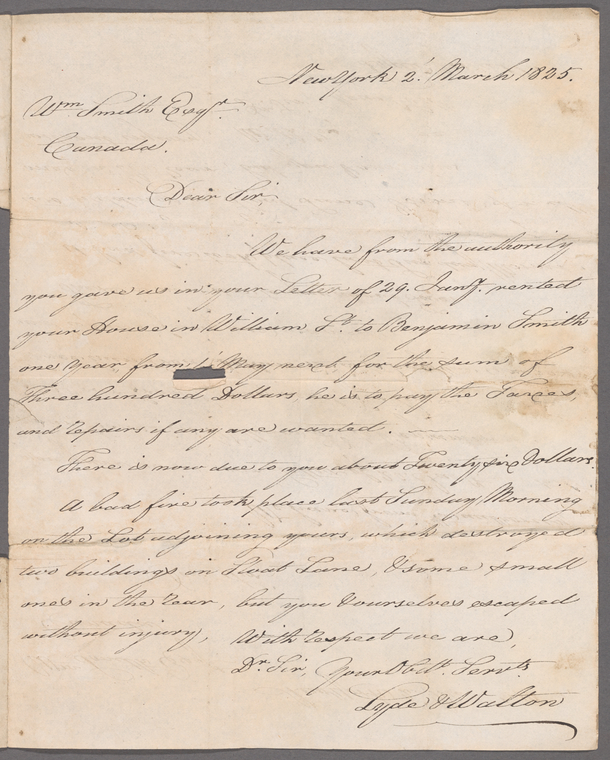 New York 2. March 1825.
Wm Smith Esqr.
Canada.
Dear Sir,
We have from the authority
you gave us in your Letter of 29. Jany. rented
your House in William St. to Benjamin Smith
one year from 1t May next for the sum of
Three hundred Dollars he is to pay the Taxes,
and repairs if any are wanted. —
There is now due to you about Twenty six Dollars.
A bad fire took place last Sunday Morning
on the Lot adjoining yours, which destroyed
two buildings on Sloat Lane, & some small
ones in the rear, but you & ourselves escaped
without injury, With respect we are,
Dr. Sir, Your Obdt. Servts.
Lyde & Walton